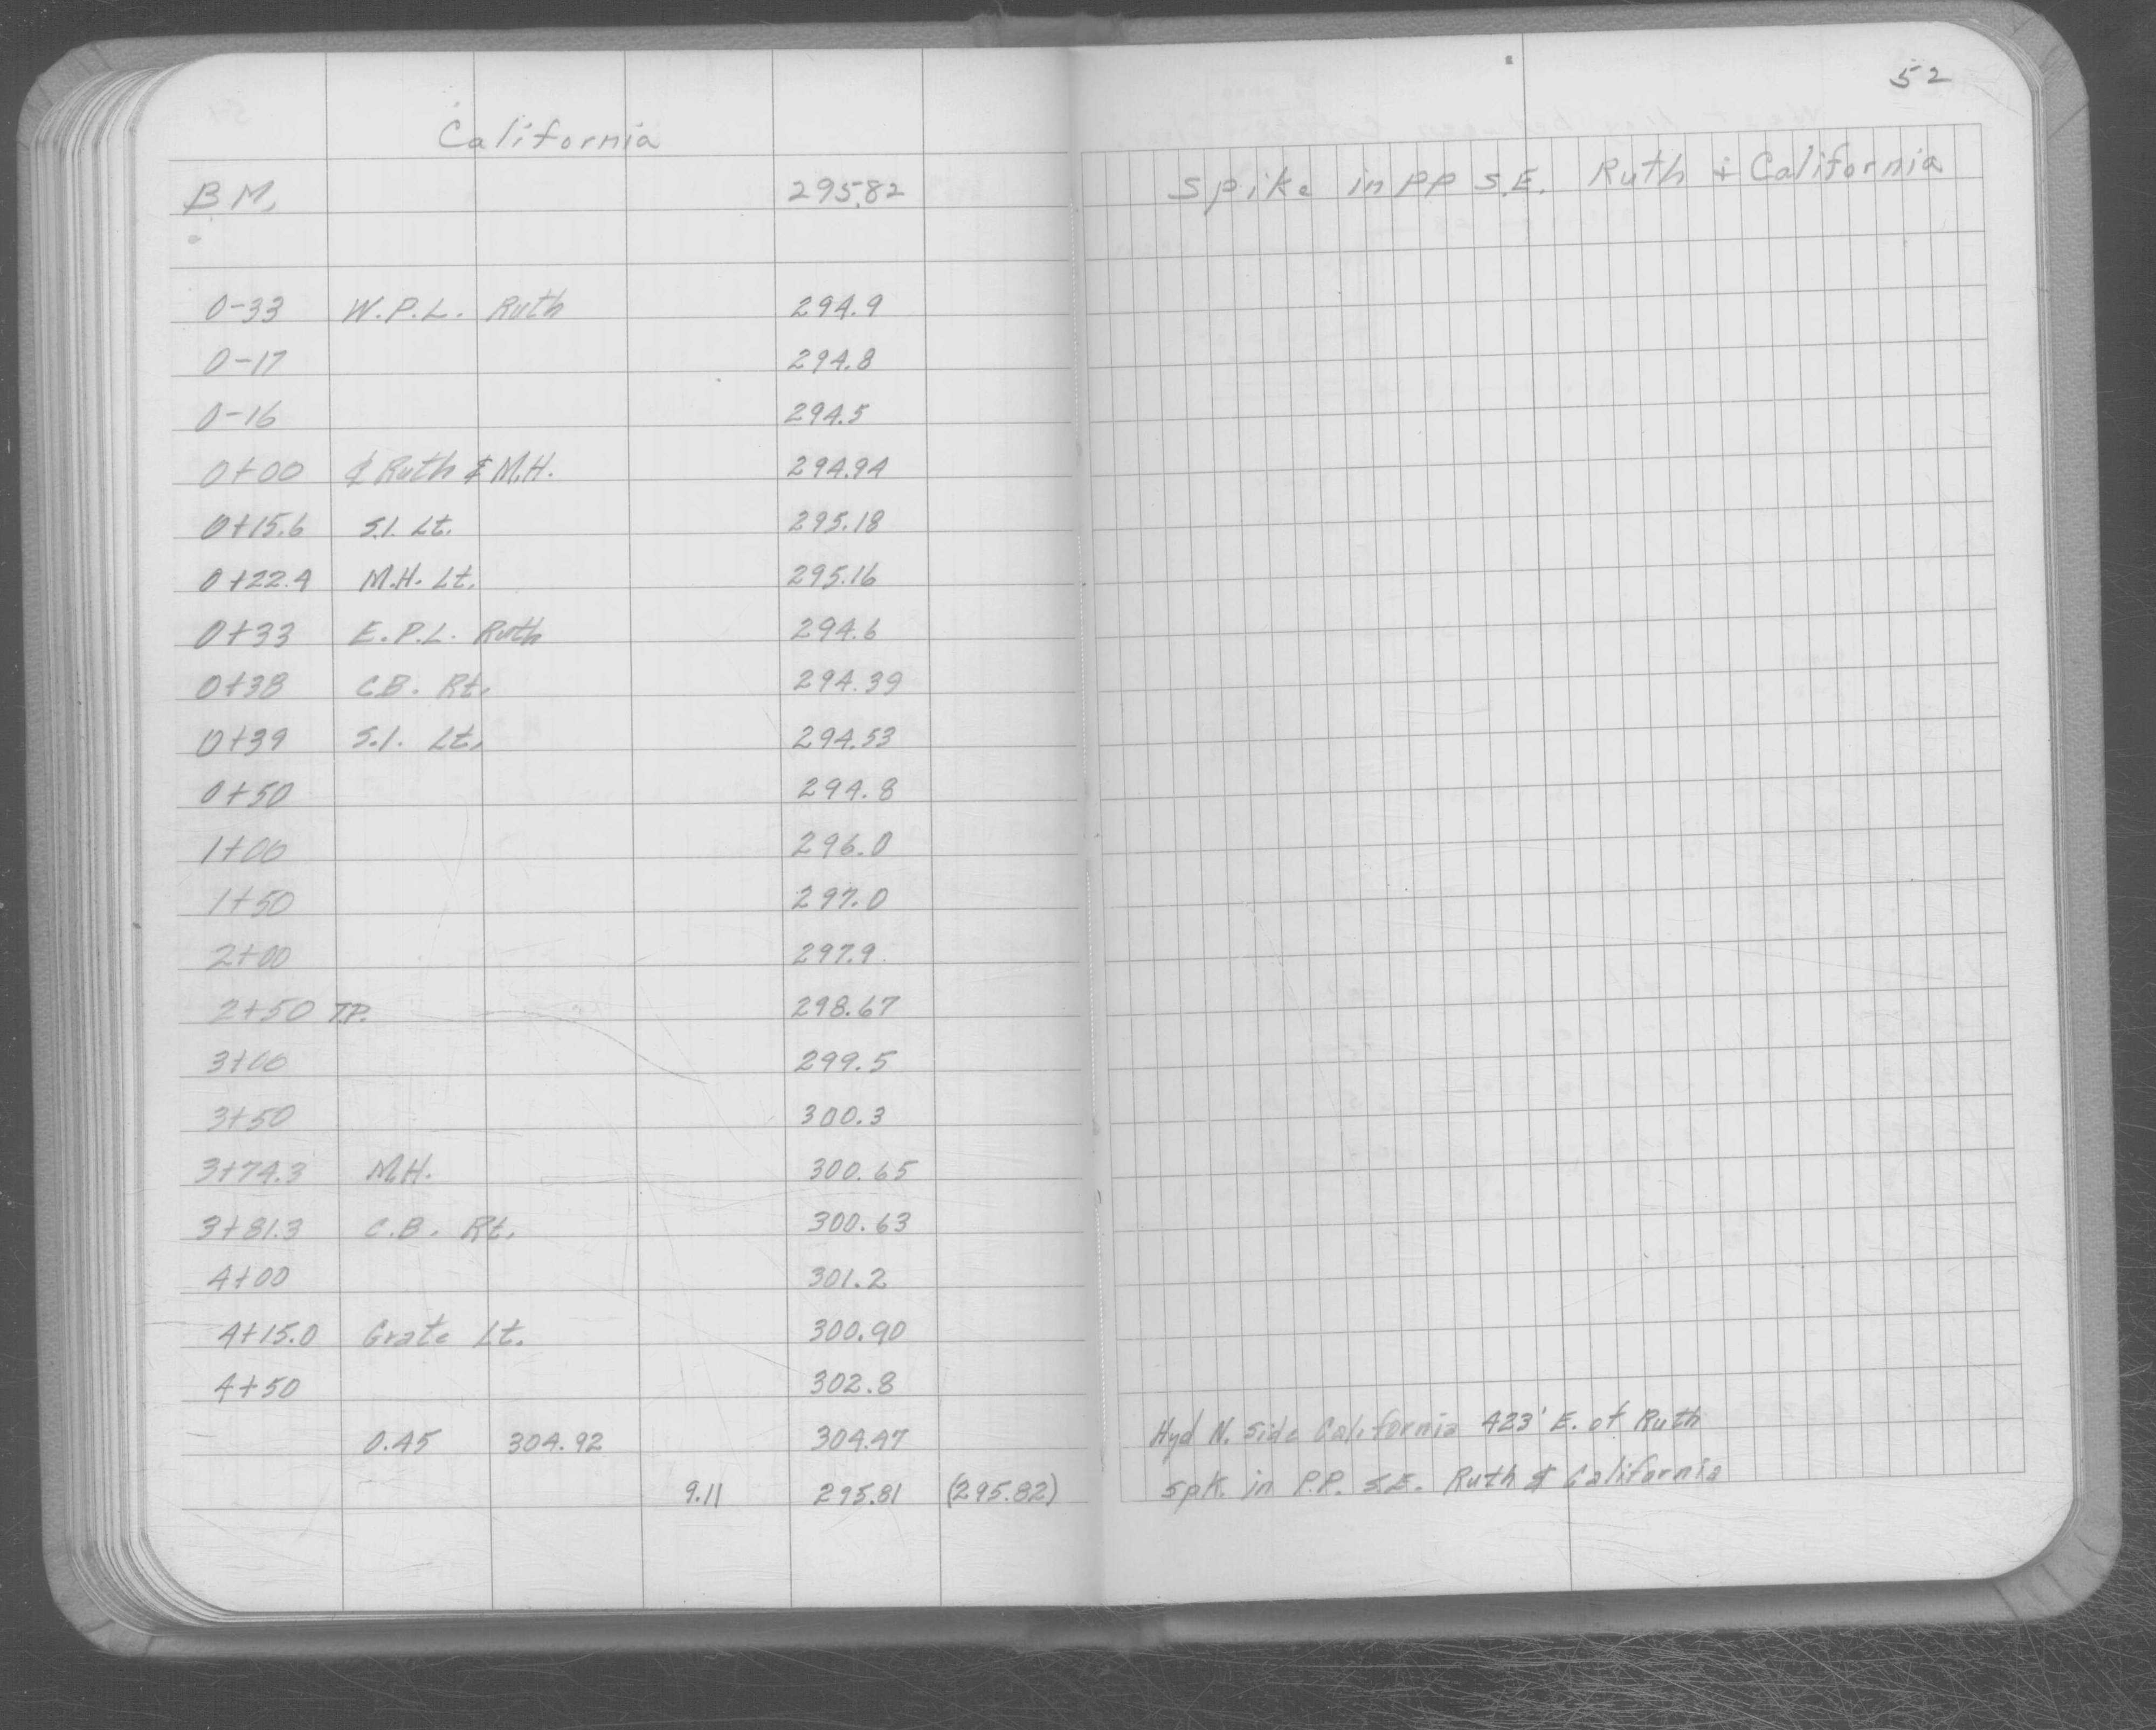 52
California
B M. 295.82 Spike in PP S.E. Ruth & California
0-33 W.P.L. Ruth 294.9
0-17 294.8
0-16 294.5
0+00 ℄ Ruth & M.H. 294.94
0+15.6 S.I. Lt. 295.18
0+22.4 M.H. Lt. 295.16
0+33 E.P.L. Ruth 294.6
0+38 C.B. Rt. 294.39
0+39 S.I. Lt. 294.53
0+50 294.8
1+00 296.0
1+50 297.0
2+00 297.9
2+50 T.P. 298.67
3+00 299.5
3+50 300.3
3+74.3 M.H. 300.65
3+81.3 C.B. Rt. 300.63
4+00 301.2
4+15.0 Grate Lt. 300.90
4+50 302.8
0.45 304.92 304.47 Hyd N. Side California 423' E. of Ruth
9.11 295.81 (295.82) Spk. in P.P. S.E. Ruth & California